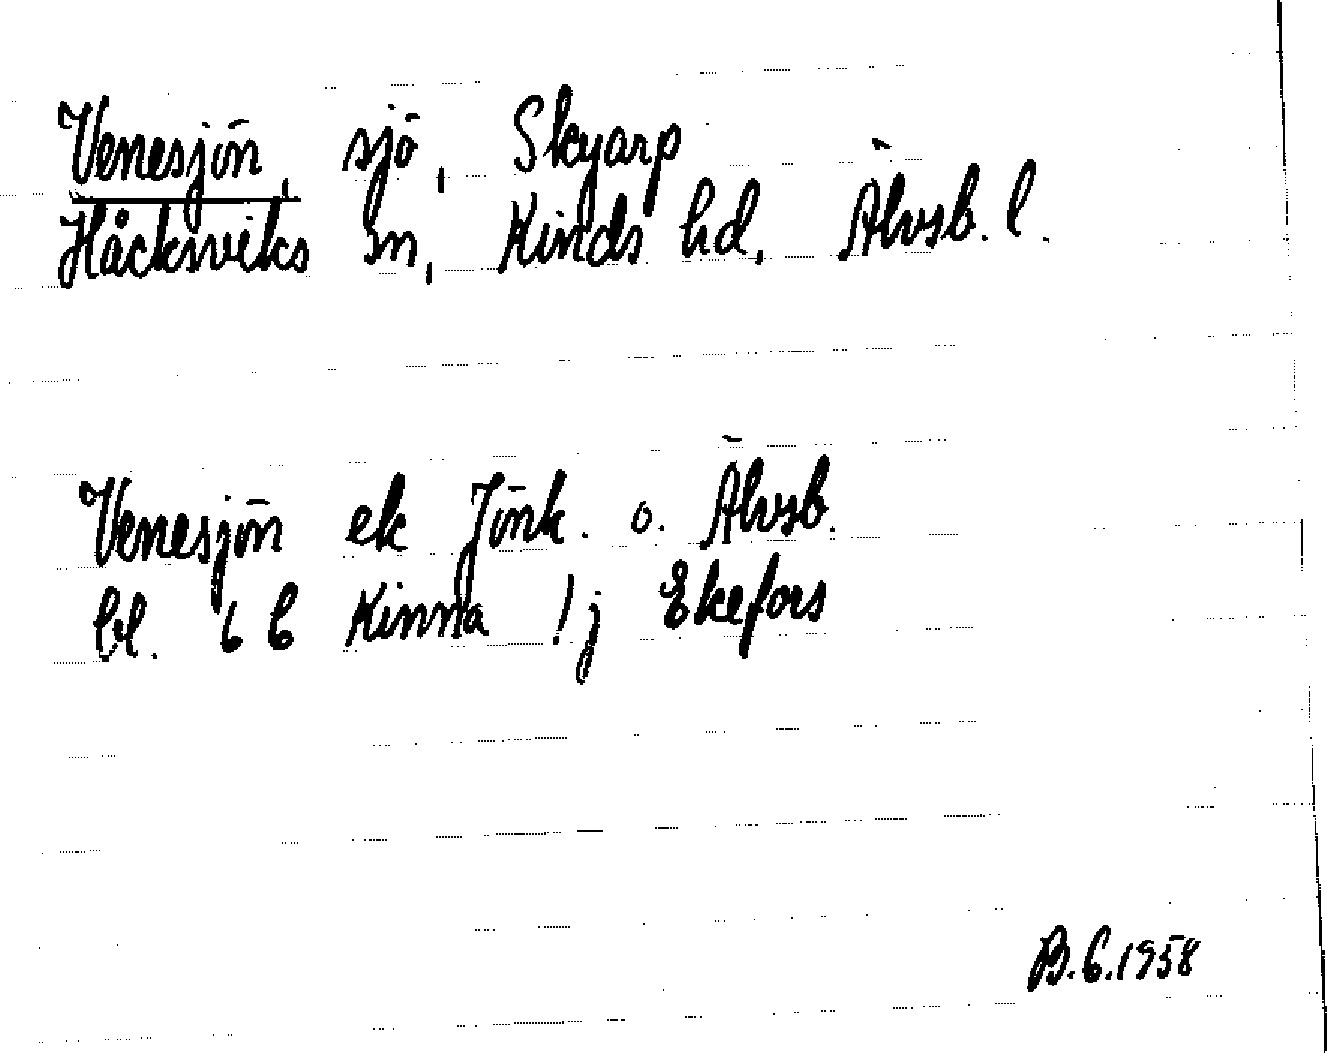 Venesjön, sjö, Skyarp
Håcksviks sn, Kinds hd, Älvsb. l.
Venesjön ek Jönk. o. Älvsb.
bl. 6 b Kinna 1j Ekefors
B.G.1958